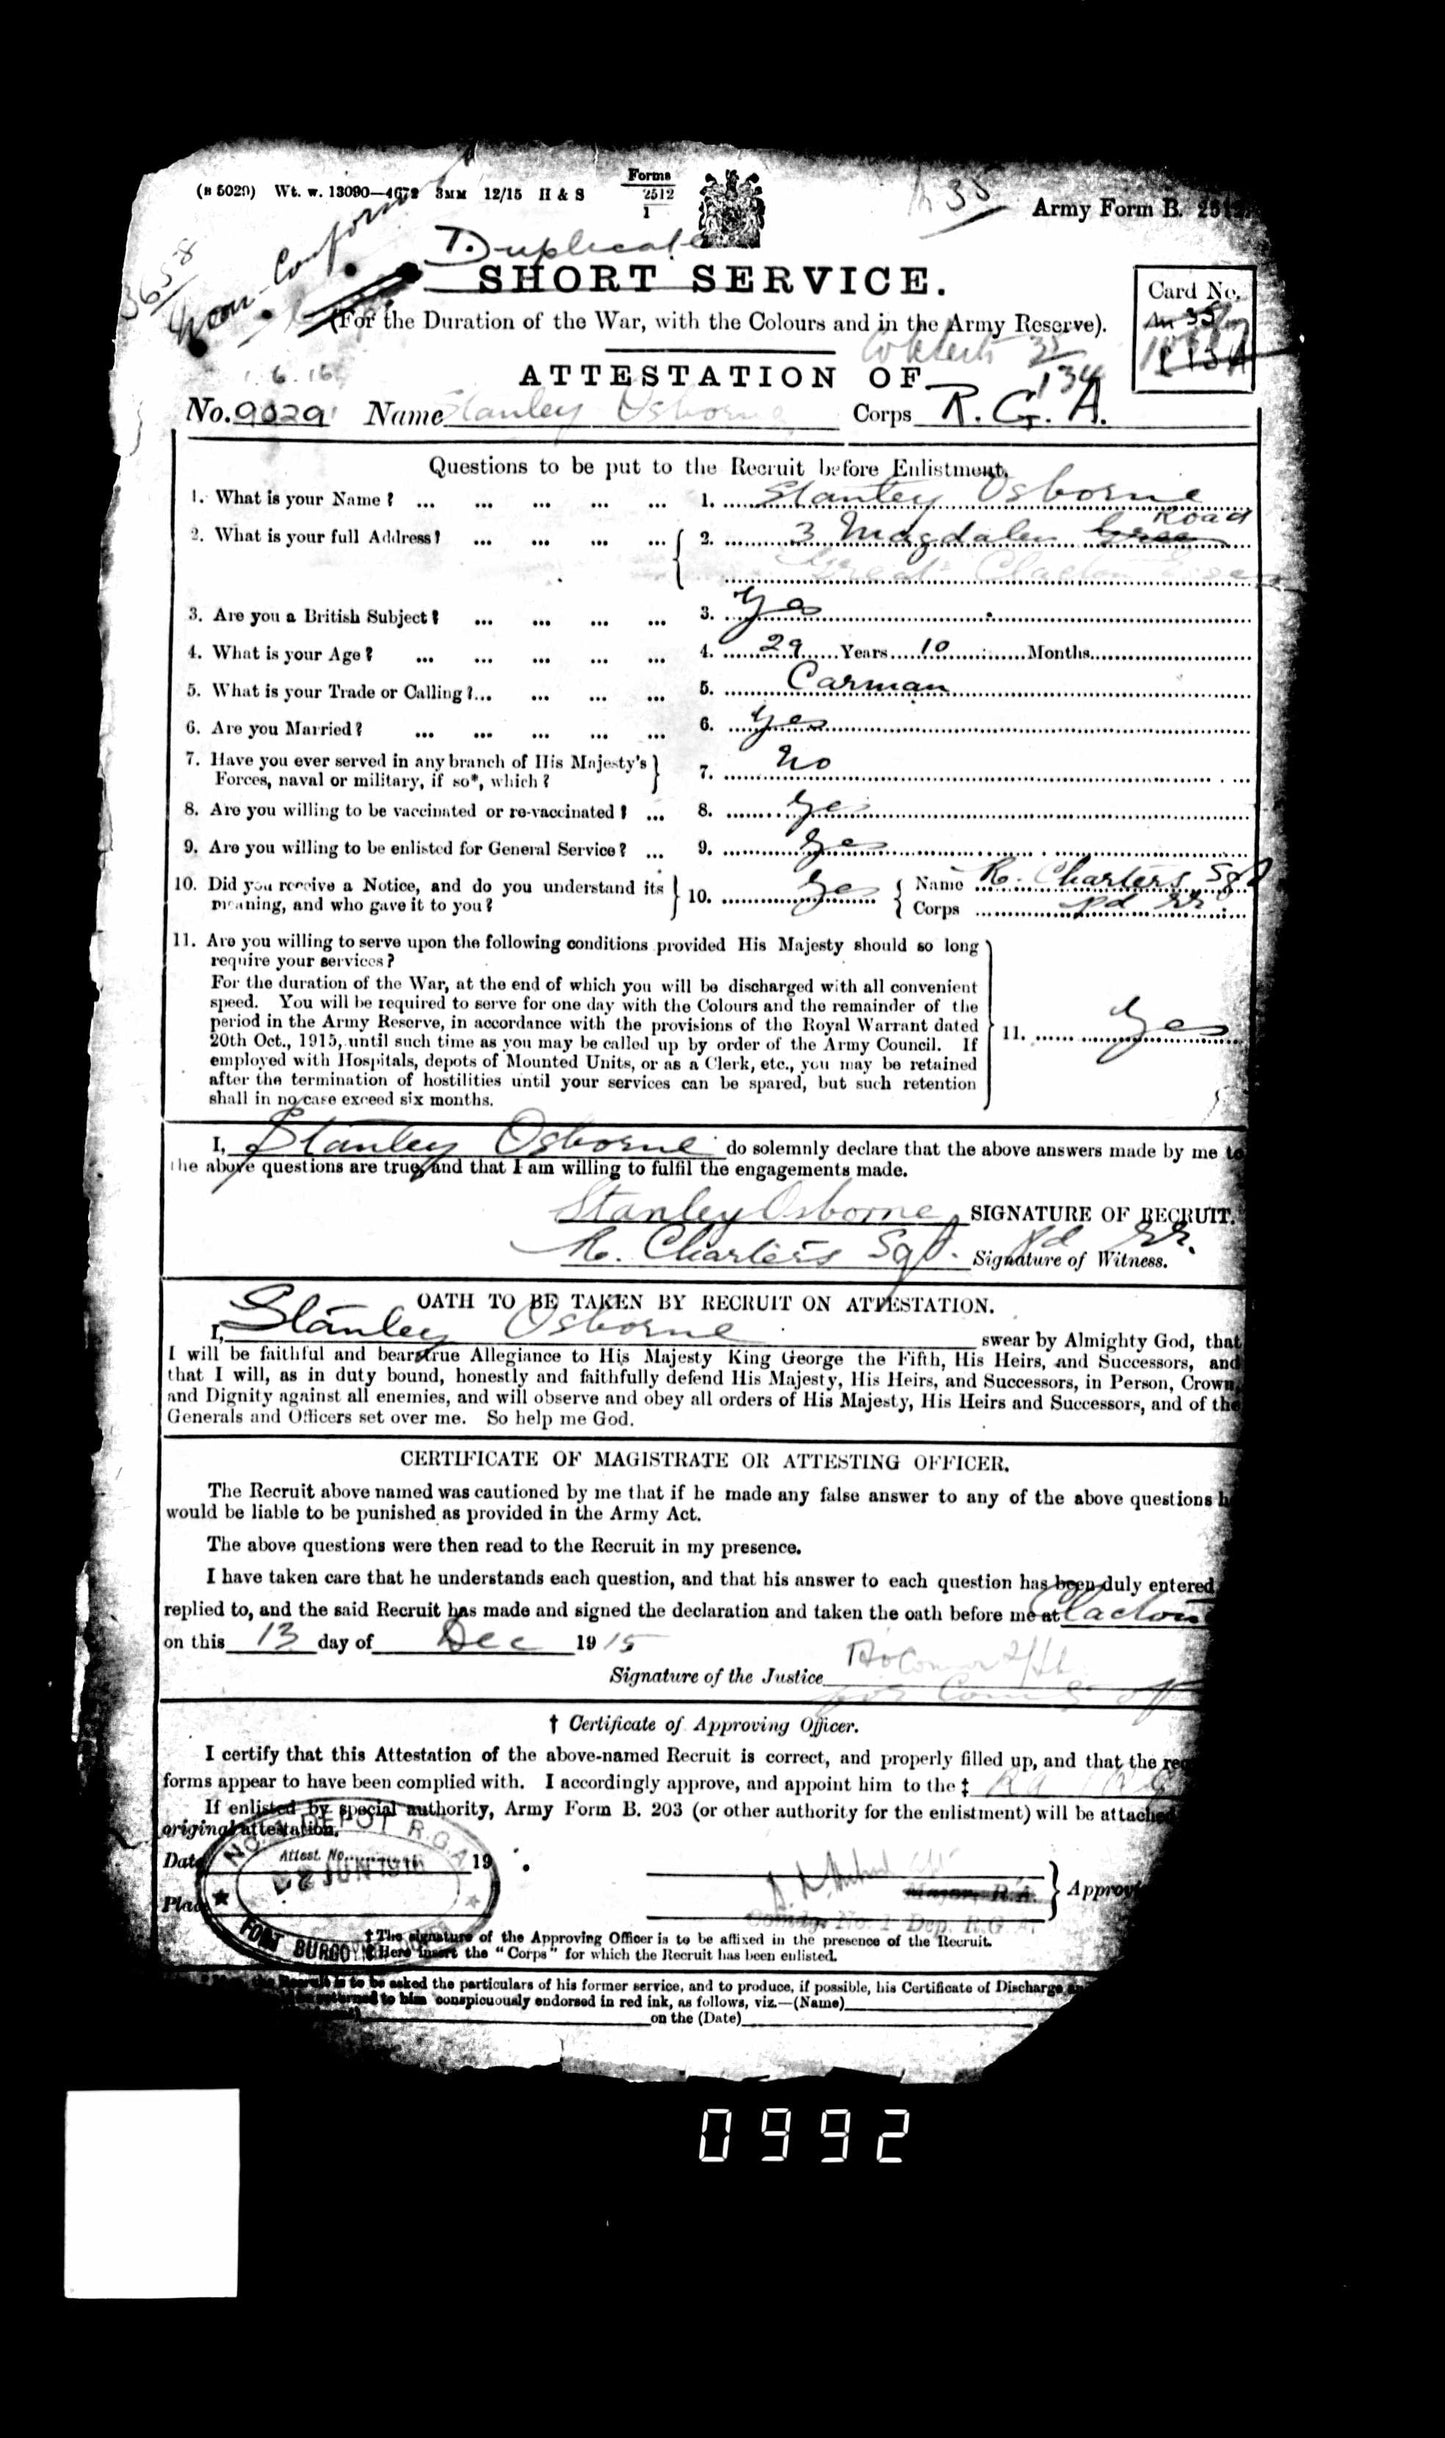 (B 5029) Wt. w. 13090—4672 3MM 12/15 H & S
Forms
2512
1
Army Form B. 2512
3658
Non-Conformist
Duplicate
SHORT SERVICE.
(For the Duration of the War, with the Colours and in the Army Reserve).
Card No.
ATTESTATION OF
134
1.6.16
No. 90291 Name Stanley Osborne Corps R.G.A.
Questions to be put to the Recruit before Enlistment.
1. What is your Name? ... ... ... ... ... 1. Stanley Osborne
2. What is your full Address? ... ... ... ... 2. 3 Magdalen Green Road
Great Clacton Essex
3. Are you a British Subject? ... ... ... ... 3. Yes
4. What is your Age? ... ... ... ... ... 4. 29 Years 10 Months
5. What is your Trade or Calling?... ... ... ... 5. Carman
6. Are you Married? ... ... ... ... ... 6. Yes
7. Have you ever served in any branch of His Majesty's
Forces, naval or military, if so*, which? } 7. No
8. Are you willing to be vaccinated or re-vaccinated? ... 8. Yes
9. Are you willing to be enlisted for General Service? ... 9. Yes
10. Did you receive a Notice, and do you understand its
meaning, and who gave it to you? } 10. Yes { Name R. Charters Sgt
Corps
11. Are you willing to serve upon the following conditions provided His Majesty should so long
require your services?
For the duration of the War, at the end of which you will be discharged with all convenient
speed. You will be required to serve for one day with the Colours and the remainder of the
period in the Army Reserve, in accordance with the provisions of the Royal Warrant dated
20th Oct., 1915, until such time as you may be called up by order of the Army Council. If
employed with Hospitals, depots of Mounted Units, or as a Clerk, etc., you may be retained
after the termination of hostilities until your services can be spared, but such retention
shall in no case exceed six months.
11. Yes
I, Stanley Osborne do solemnly declare that the above answers made by me to
the above questions are true, and that I am willing to fulfil the engagements made.
Stanley Osborne SIGNATURE OF RECRUIT.
R. Charters Sgt. Signature of Witness.
OATH TO BE TAKEN BY RECRUIT ON ATTESTATION.
I, Stanley Osborne swear by Almighty God, that
I will be faithful and bear true Allegiance to His Majesty King George the Fifth, His Heirs, and Successors, and
that I will, as in duty bound, honestly and faithfully defend His Majesty, His Heirs, and Successors, in Person, Crown,
and Dignity against all enemies, and will observe and obey all orders of His Majesty, His Heirs and Successors, and of the
Generals and Officers set over me. So help me God.
CERTIFICATE OF MAGISTRATE OR ATTESTING OFFICER.
The Recruit above named was cautioned by me that if he made any false answer to any of the above questions h
would be liable to be punished as provided in the Army Act.
The above questions were then read to the Recruit in my presence.
I have taken care that he understands each question, and that his answer to each question has been duly entered
replied to, and the said Recruit has made and signed the declaration and taken the oath before me at Clacton
on this 13 day of Dec 1915
Signature of the Justice
† Certificate of Approving Officer.
I certify that this Attestation of the above-named Recruit is correct, and properly filled up, and that the req
forms appear to have been complied with. I accordingly approve, and appoint him to the ‡
If enlisted by special authority, Army Form B. 203 (or other authority for the enlistment) will be attached
original attestation.
No. 1 DEPOT R.G.A.
Attest. No.
Date 2 JUN 1916 19
Major, R.A. } Approv
Place
Comdg. No. 1 Dep. R.G.A.
FORT BURGOYNE
† The signature of the Approving Officer is to be affixed in the presence of the Recruit.
‡ Here insert the "Corps" for which the Recruit has been enlisted.
the Recruit is to be asked the particulars of his former service, and to produce, if possible, his Certificate of Discharge
returned to him conspicuously endorsed in red ink, as follows, viz.—(Name)
on the (Date)
0992